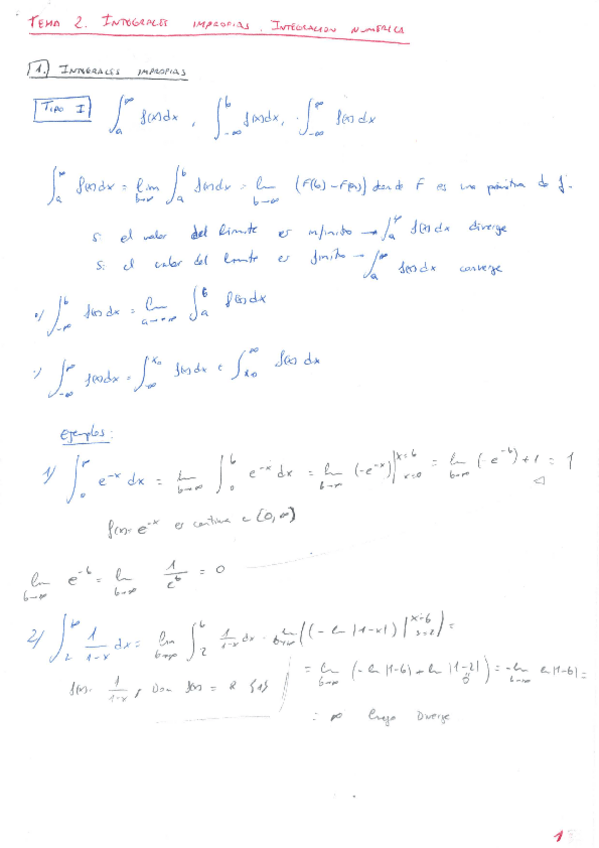 TEMA 2. INTEGRALES IMPROPIAS. INTEGRACION NUMERICA
1. INTEGRALES IMPROPIAS
TIPO I ∫_a^∞ f(x)dx, ∫_{-∞}^b f(x)dx, ∫_{-∞}^∞ f(x)dx
∫_a^∞ f(x)dx = lim_{b→∞} ∫_a^b f(x)dx = lim_{b→∞} (F(b)-F(a)) donde F es una primitiva de f.
Si el valor del limite es infinito → ∫_a^∞ f(x)dx diverge
Si el valor del limite es finito → ∫_a^∞ f(x)dx converge
∫_{-∞}^b f(x)dx = lim_{a→-∞} ∫_a^b f(x)dx
∫_{-∞}^∞ f(x)dx = ∫_{-∞}^{x_0} f(x)dx + ∫_{x_0}^∞ f(x)dx
Ejemplos:
1) ∫_0^∞ e^{-x} dx = lim_{b→∞} ∫_0^b e^{-x} dx = lim_{b→∞} (-e^{-x})|_{x=0}^{x=b} = lim_{b→∞} (-e^{-b})+1 = 1
f(x)=e^{-x} es continua en [0,∞)
lim_{b→∞} e^{-b} = lim_{b→∞} 1/e^b = 0
2) ∫_2^∞ 1/(1-x) dx = lim_{b→∞} ∫_2^b 1/(1-x) dx = lim_{b→∞} ((-ln|1-x|)|_{x=2}^{x=b} =
f(x)= 1/(1-x), Dom f(x) = R-{1}
= lim_{b→∞} (-ln|1-b| + ln|1-2|) = -lim_{b→∞} ln|1-b| =
0
= ∞ luego Diverge
1